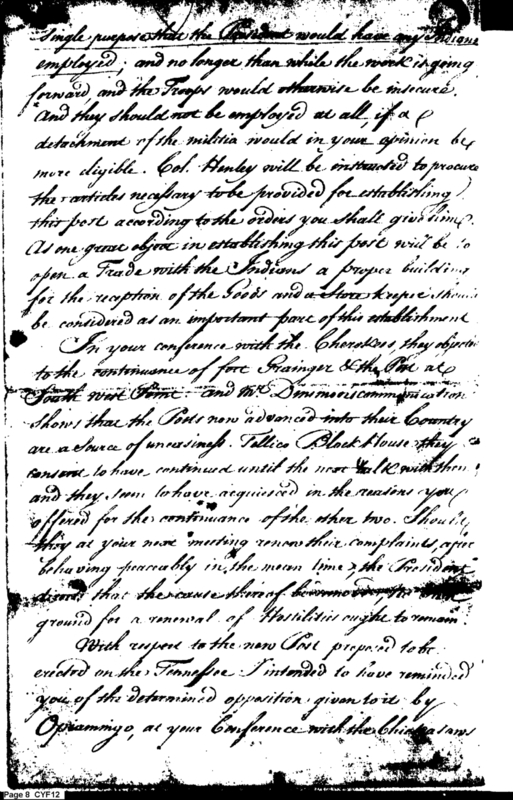 single purpose that the President would have any Indians
employed, and no longer than while the work is going
forward and the Troops would otherwise be insecure.
And they should not be employed at all, if a
detachment of the militia would in your opinion be
more eligible. Col. Henley will be instructed to procure
the articles necessary to be provided for establishing
this post according to the orders you shall give him.
As one great object in establishing this post will be to
open a Trade with the Indians a proper building
for the reception of the Goods and a Store keeper should
be considered as an important part of this establishment
In your conference with the Cherokees, they objected
to the continuance of fort Grainger & the Post at
South west Point and Mr. Dinsmoor communication
shows that the Posts now advanced into their Country
are a source of uneasiness. Tellico Block House they
consent to have continued until the next talk with them
and they seem to have acquiesced in the reasons you
offered for the continuance of the other two. Should
they at your next meeting renew their complaints, after
behaving peaceably in the mean time, the President
that the cause thereof be removed
ground for a renewal of Hostilities ought to remain
With respect to the new Post proposed to be
erected on the Tennessee I intended to have reminded
you of the determined opposition given to it by
Opiammigo, at your Conference with the Chickasaws
Page 8 CYF12